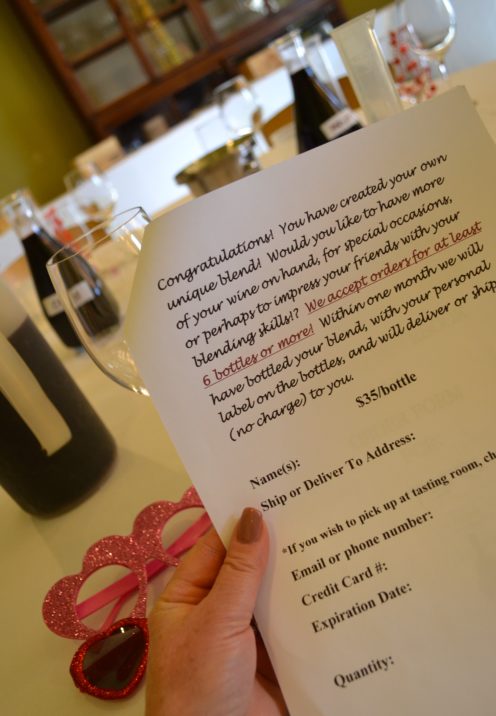 Congratulations! You have created your own
unique blend! Would you like to have more
of your wine on hand, for special occasions,
or perhaps to impress your friends with your
blending skills!? We accept orders for at least
6 bottles or more! Within one month we will
have bottled your blend, with your personal
label on the bottles, and will deliver or ship
(no charge) to you.
$35/bottle
Name(s):
Ship or Deliver To Address:
*If you wish to pick up at tasting room, ch
Email or phone number:
Credit Card #:
Expiration Date:
Quantity: